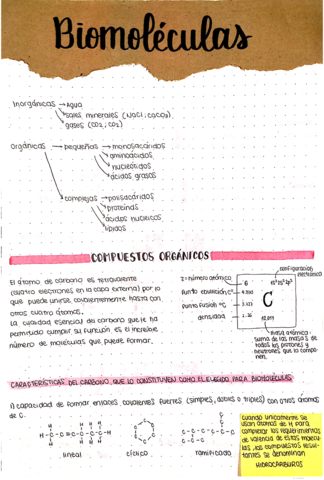 Biomoléculas
Inorgánicas → Agua
sales minerales (NaCl, CaCO3)
gases (CO2, O2)
Orgánicas → pequeñas → monosacáridos
aminoácidos
nucleótidos
ácidos grasos
complejas → polisacáridos
proteínas
ácidos nucleicos
lípidos
COMPUESTOS ORGÁNICOS
El átomo de carbono es tetravalente
(cuatro electrones en la capa externa) por lo
que puede unirse covalentemente hasta con
otros cuatro átomos.
La cualidad esencial del carbono que le ha
permitido cumplir su función es el increíble
número de moléculas que puede formar.
configuración
electrónica
Z = número atómico
6
Punto ebullición °C
Punto fusión °C
densidad
C
12,011
masa atómica:
suma de las masas de
todos los protones y
neutrones que lo compo-
nen.
CARACTERÍSTICAS DEL CARBONO QUE LO CONSTITUYEN COMO EL ELEGIDO PARA BIOMOLÉCULAS
1) capacidad de formar enlaces covalentes fuertes (simples, dobles o triples) con otros átomos
de C.
lineal
cíclico
ramificado
cuando únicamente se
usan átomos de H para
completar los requerimientos
de valencia de estas molécu-
las, los compuestos resul-
tantes se denominan
HIDROCARBUROS